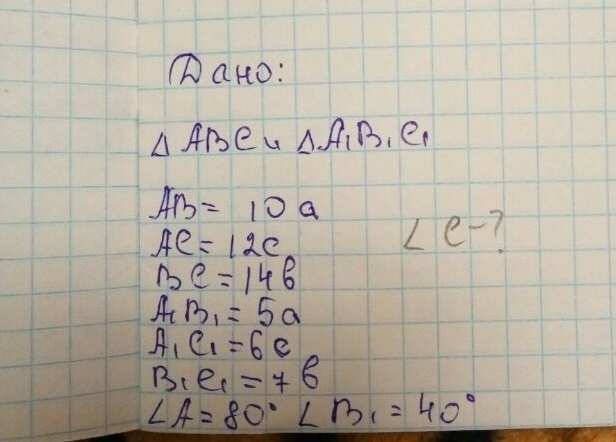 Дано:
△ ABC и △ A₁B₁C₁
AB = 10a
AC = 12c
∠ C - ?
BC = 14b
A₁B₁ = 5a
A₁C₁ = 6c
B₁C₁ = 7b
∠A = 80° ∠B₁ = 40°